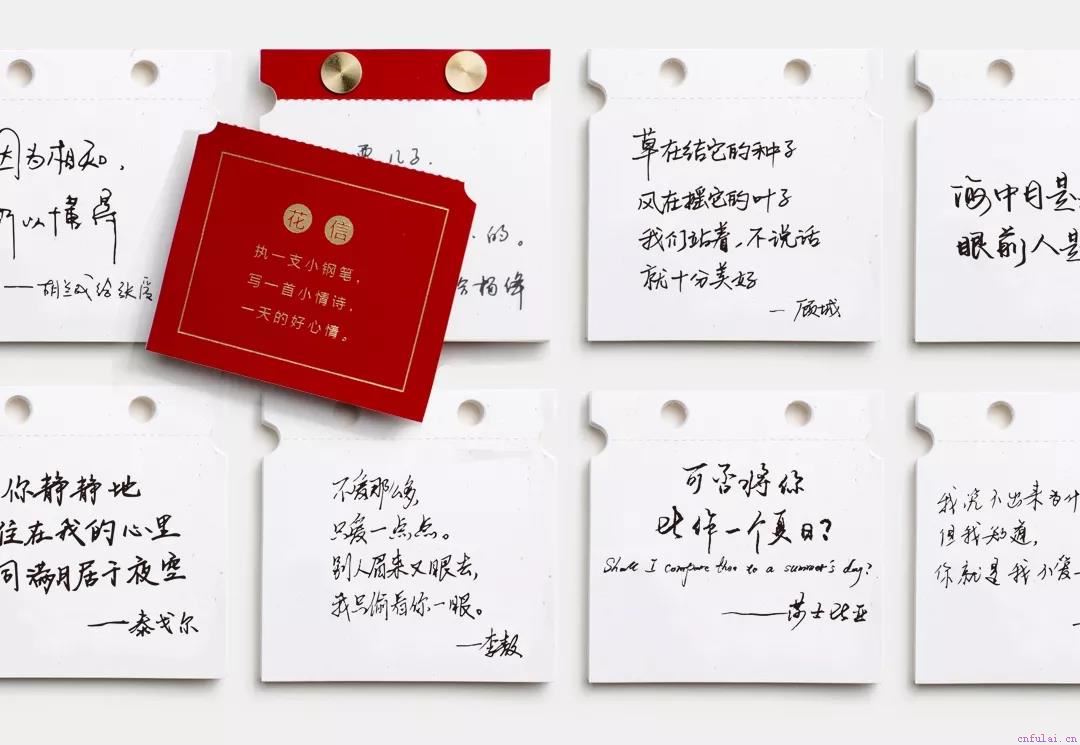 因为相知，
所以懂得
——胡兰成给张爱
要 儿子.
的。
杨绛
花信
执一支小钢笔，
写一首小情诗，
一天的好心情。
草在结它的种子
风在摇它的叶子
我们站着，不说话
就十分美好
—顾城
海中月是
眼前人是
你静静地
住在我的心里
同满月居于夜空
——泰戈尔
不爱那么多，
只爱一点点。
别人眉来又眼去，
我只偷看你一眼。
—李敖
可否将你
比作一个夏日？
Shall I compare thee to a summer's day?
——莎士比亚
我说不出来为什
但我知道，
你就是我不爱
cnfulai.cn